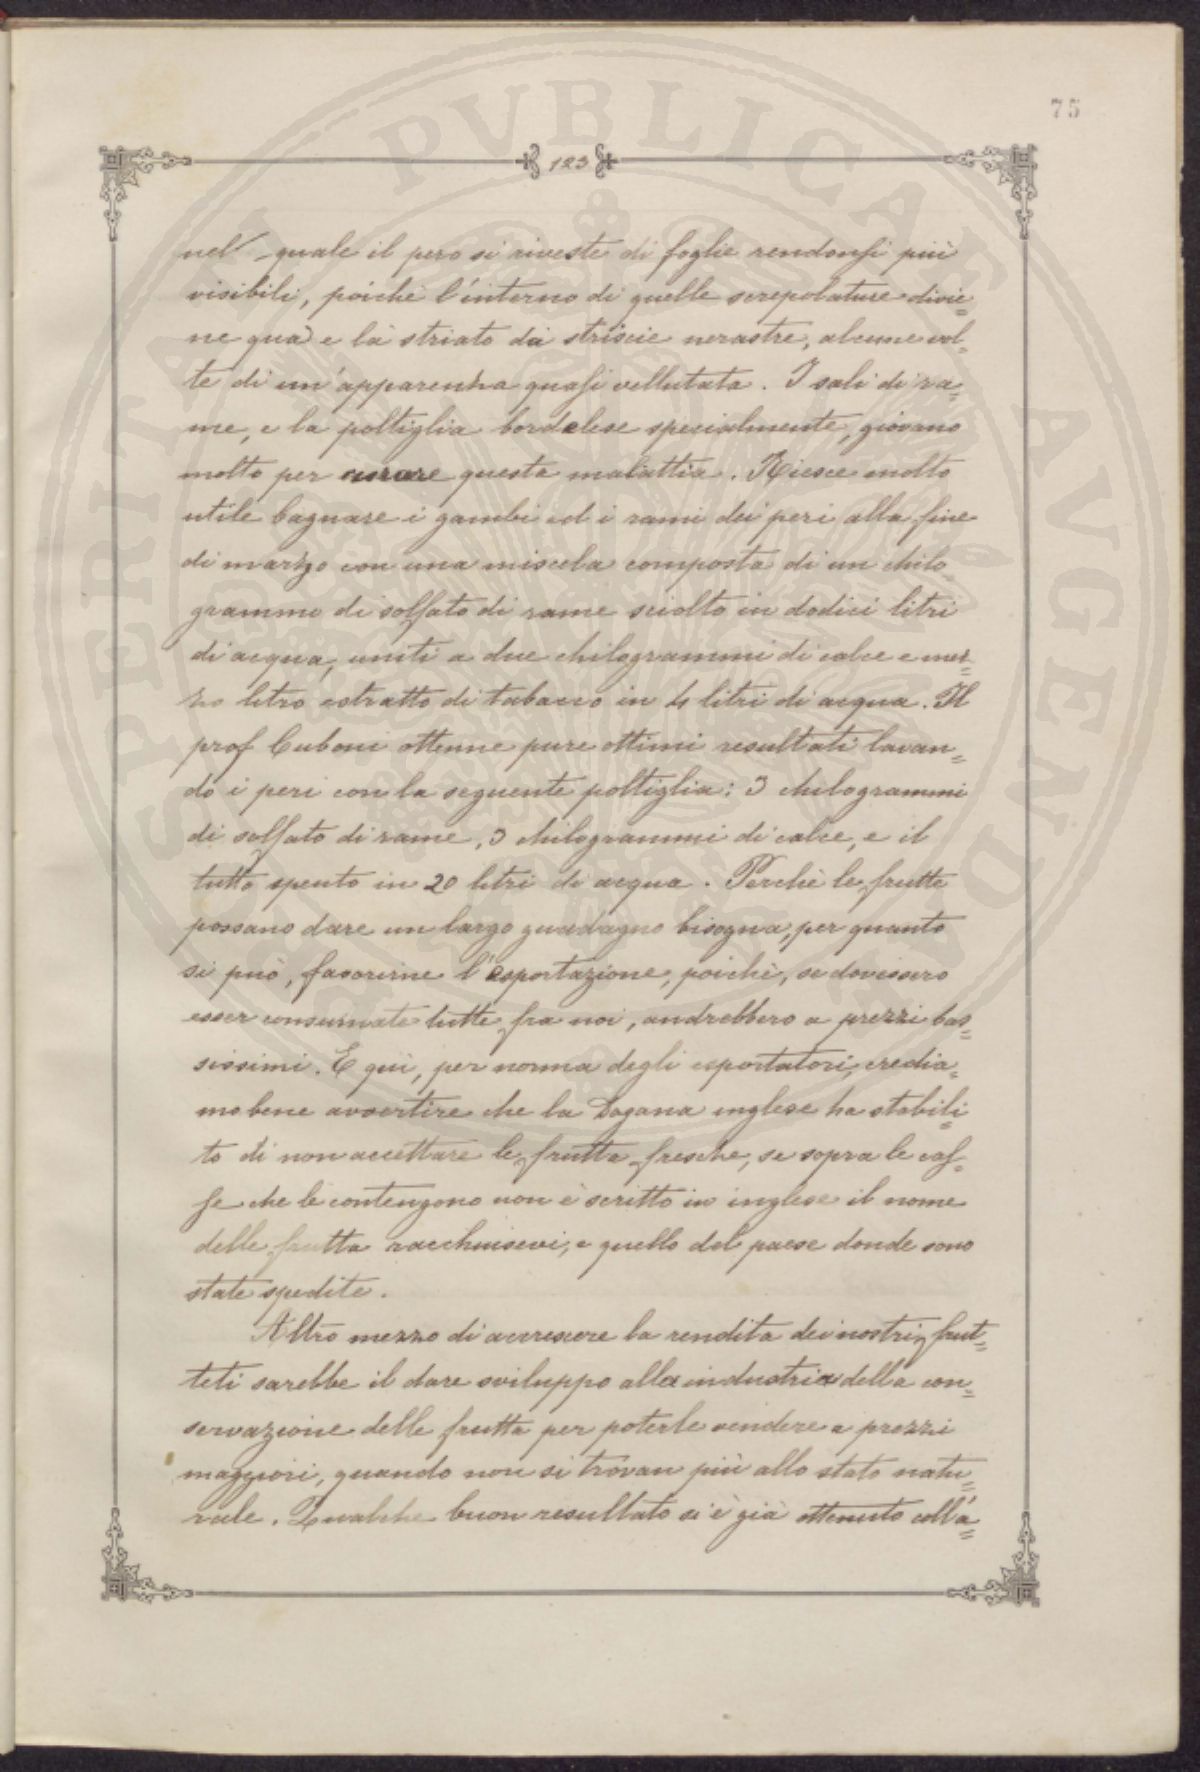 75
123
nel quale il pero si riveste di foglie rendonsi più
visibili, poichè l'interno di quelle screpolature divie=
ne qua e là striato da striscie nerastre, alcune vol=
te di un'apparenza quasi vellutata. I sali di ra=
me, e la poltiglia bordolese specialmente, giovano
molto per curare questa malattia. Riesce molto
utile bagnare i gambi ed i rami dei peri alla fine
di marzo con una miscela composta di un chilo=
grammo di solfato di rame sciolto in dodici litri
di acqua, uniti a due chilogrammi di calce e mez=
zo litro estratto di tabacco in 4 litri di acqua. Il
prof Cuboni ottenne pure ottimi resultati lavan=
do i peri con la seguente poltiglia: 3 chilogrammi
di solfato di rame, 3 chilogrammi di calce, e il
tutto spento in 20 litri di acqua. Perchè le frutte
possano dare un largo guadagno bisogna, per quanto
si può, favorirne l'esportazione, poichè, se dovessero
esser consumate tutte fra noi, andrebbero a prezzi bas=
sissimi. E qui, per norma degli esportatori, credia=
mo bene avvertire che la Dogana inglese ha stabili=
to di non accettare le frutta fresche, se sopra le cas=
se che le contengono non è scritto in inglese il nome
delle frutta racchiusevi, e quello del paese donde sono
state spedite.
Altro mezzo di accrescere la rendita dei nostri frut=
teti sarebbe il dare sviluppo alla industria della con=
servazione delle frutta per poterle vendere a prezzi
maggiori, quando non si trovan più allo stato natu=
rale. Qualche buon resultato si è già ottenuto coll'a=
PROSPERITATI PVBLICAE AVGENDAE